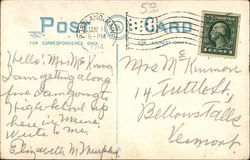 5¢
POST CARD
FOR CORRESPONDENCE ONLY
PORTLAND, MAINE
JAN
6 - PM
1914
Hello! Mrs McKinnon
I am getting along
fine I am going to
High School up
here in Maine
Write to me.
Elizabeth M Murphy
Mrs McKinnon
14 Tuttle St,
Bellows Falls
Vermont.